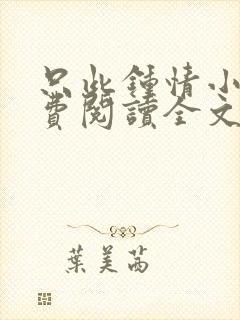 只此鍾情小
費閱讀全文
葉美茜